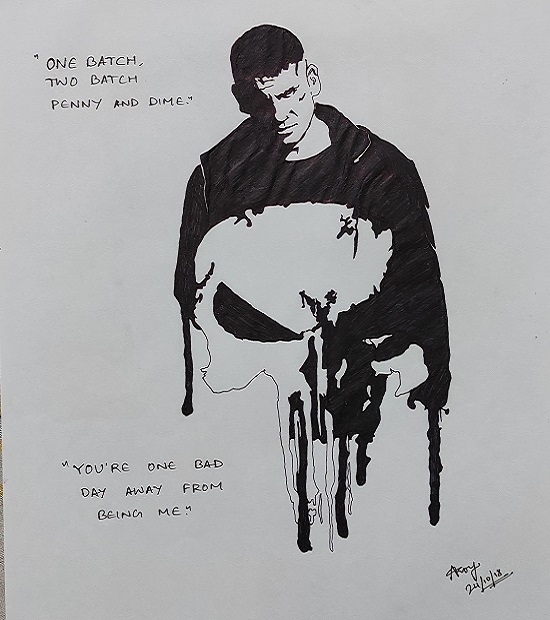 "ONE BATCH,
TWO BATCH
PENNY AND DIME."
"YOU'RE ONE BAD
DAY AWAY FROM
BEING ME."
24/10/18